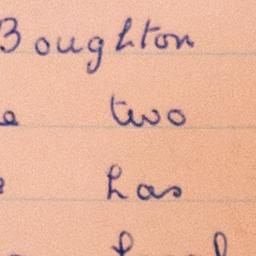 Boughton
a two
has